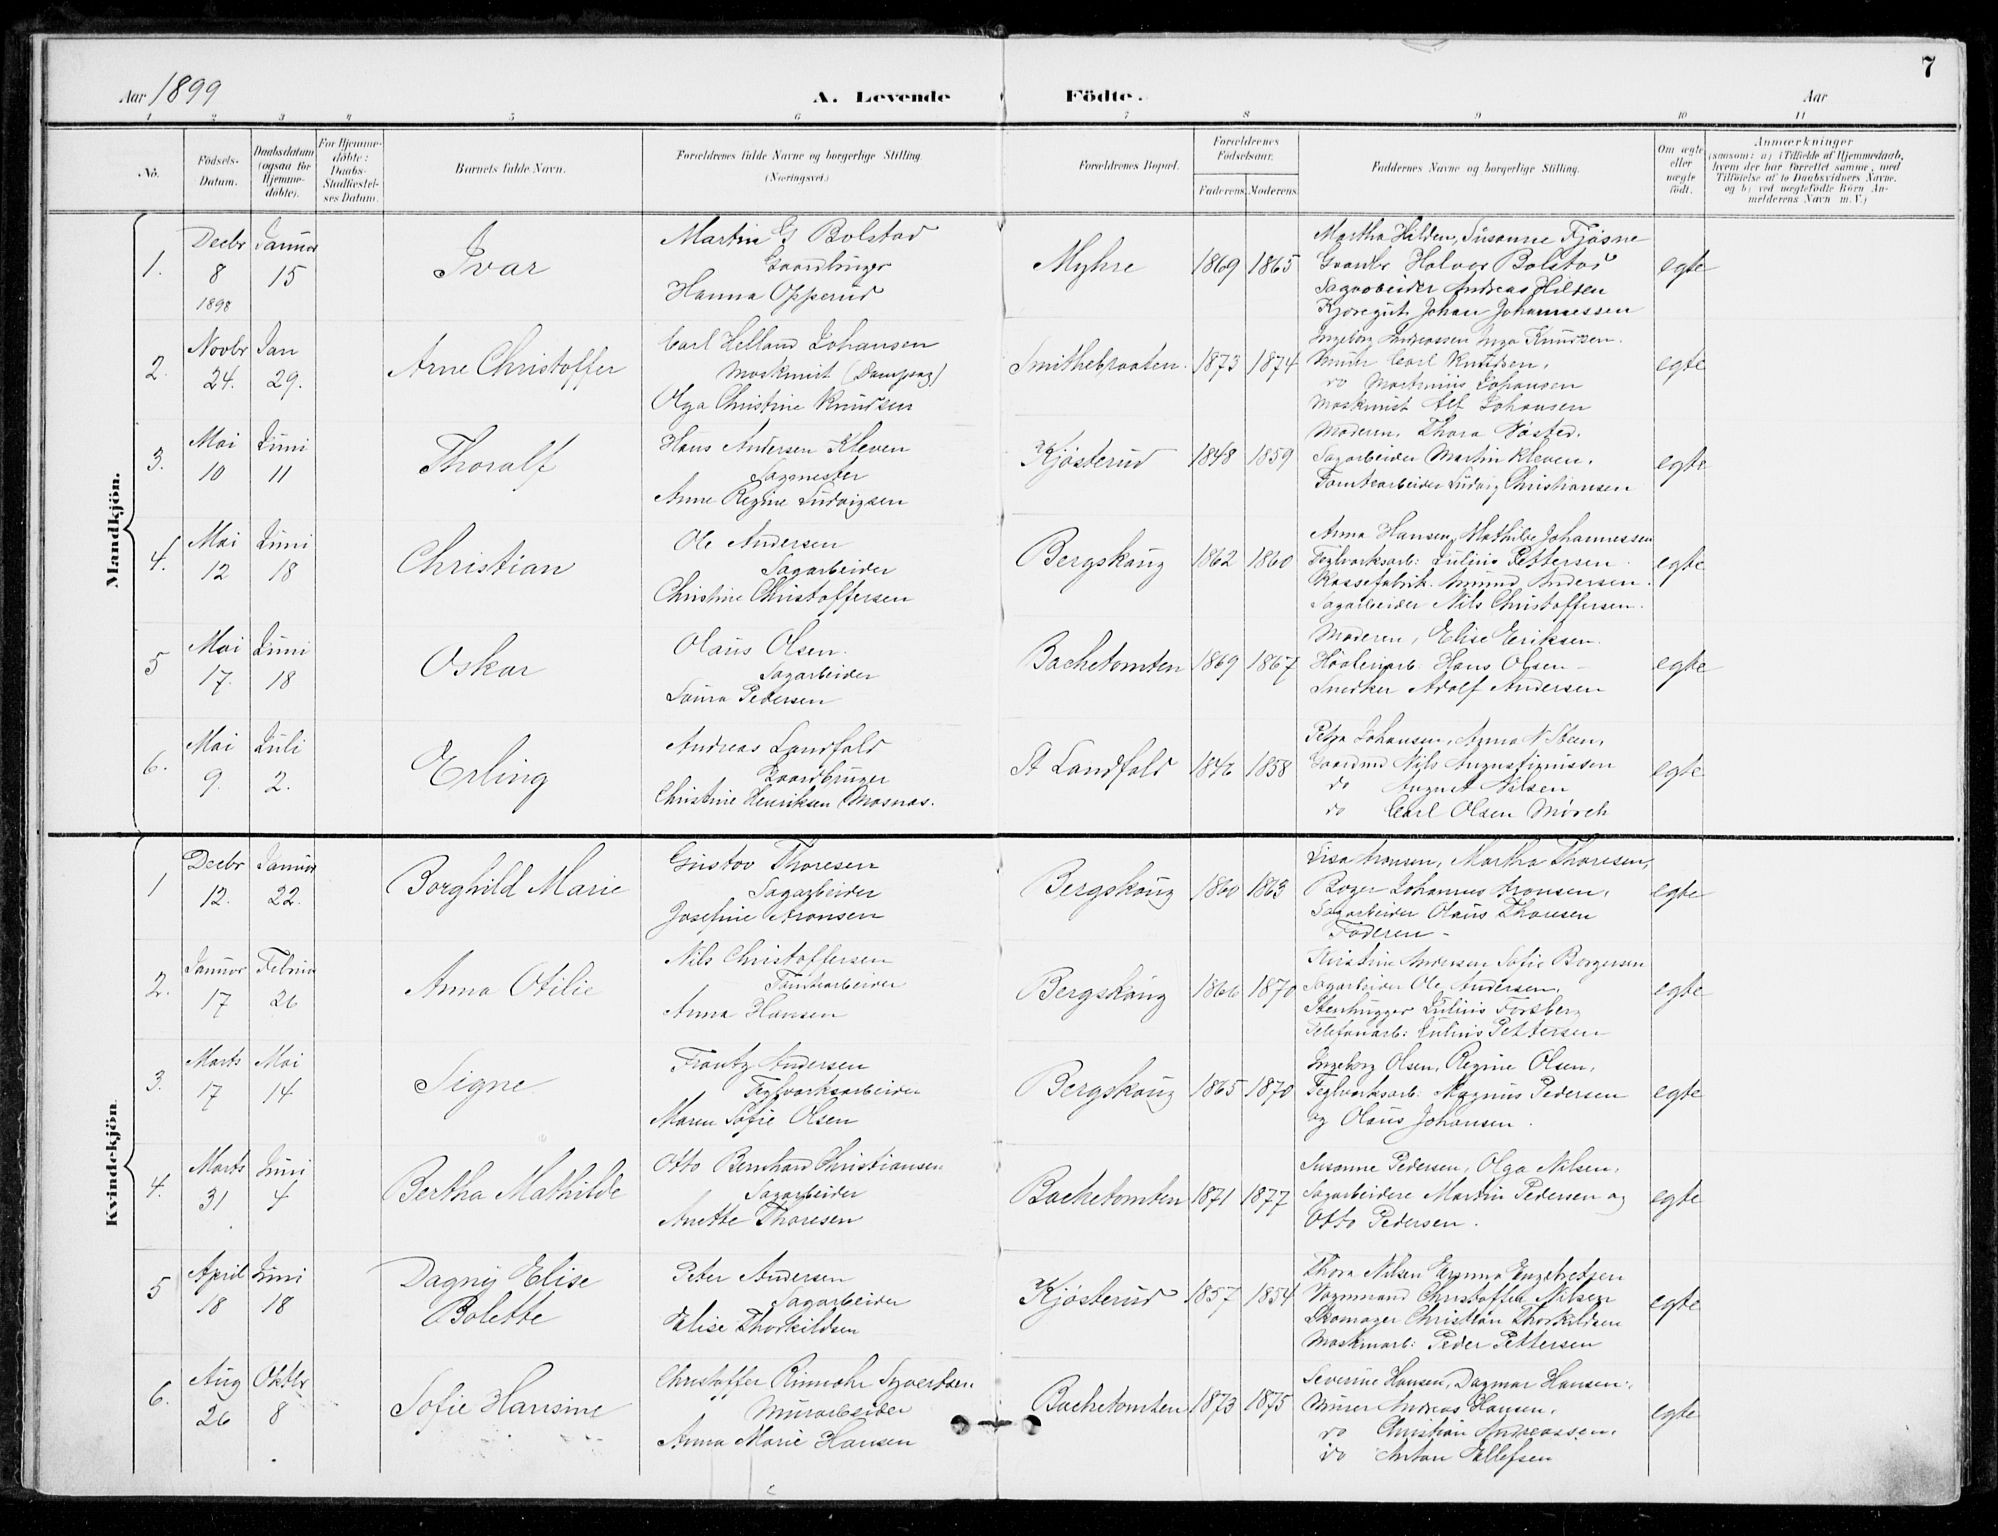 7
Aar 1899
A. Levende Födte.
Aar
1 2 3 4 5 6 7 8 9 10 11
No.
Födsels-Datum.
Daabsdatum (ogsaa for Hjemme-döbte).
For Hjemme-döbte: Daabs-Stadfæstel-ses Datum.
Barnets fulde Navn.
Forældrenes fulde Navne og borgerlige Stilling.
(Næringsvei.)
Forældrenes Bopæl.
Forældrenes Födselsaar.
Faderens. Moderens.
Faddernes Navne og borgerlige Stilling.
Om ægte eller uægte födt.
Anmærkninger
(saasom: a) i Tilfælde af Hjemmedaab, hvem der har forrettet samme, med Tilföielse af to Daabsvidners Navne. og b) ved uægtefödte Börn An-melderens Navn m. V.)
Mandkjön.
1. Decbr 8 1898 Januar 15 Ivar
Martin G Bolstad
Gaardbruger
Hanna Opperud
Myhre 1869 1865
Martha Hilden, Susanne Fjøsne
Gaardbr Halvor Bolstad
Sagarbeider Andreas Hilden
Kjøregut Johan Johannessen
egte
2. Novbr 24. Jan 29. Arne Christoffer
Carl Helland Johansen
Maskinist (Dampsag)
Olga Christine Knudsen
Smithebraaten 1873 1874
Ingeborg Andreassen Inga Knudsen.
Murer Carl Knudsen,
do Martinius Johansen
Maskinist Alf Johansen
egte
3. Mai 10 Juni 11 Thoralf
Hans Andersen Kleven
Sagmester
Anne Regine Ludvigsen
Kjösterud 1848 1859
Moderen, Thora Nøsted.
Sagarbeider Martin Kleven,
Tomtearbeider Ludvig Christiansen
egte
4. Mai 12 Juni 18 Christian
Ole Andersen
Sagarbeider
Christine Christoffersen
Bergskaug 1862 1860
Anna Hansen, Mathilde Johannessen
Teglverksarb: Julius Pettersen
Kassefabrik. Amund Andersen.
Sagarbeider Nils Christoffersen.
egte
5 Mai 17. Juni 18 Oskar
Olaus Olsen.
Sagarbeider
Laura Pedersen
Bachetomten 1869 1867
Moderen, Elise Eriksen.
Høvleriarb: Hans Olsen -
Snedker Adolf Andersen
egte
6. Mai 9. Juli 2. Erling
Andreas Landfald
Gaardbruger
Christine Henriksen Masnas.
St Landfald 1846 1858
Petra Johansen, Anna N Steen,
Gaardmd Nils Augustinussen
do August Nilsen
do Carl Olsen Mörch
egte
Kvindekjön.
1 Decbr 12. Januar 22. Borghild Marie
Gustav Thoresen
Sagarbeider
Josefine Aronsen
Bergskaug 1860 1863
Lisa Aronsen, Martha Thoresen,
Bager Johannes Aronsen,
Sagarbeider Olaus Thoresen
Faderen -
egte
2. Januar 17 Februar 26 Anna Otilie
Nils Christoffersen
Tomtearbeider
Anna Hansen
Bergskaug 1866 1870
Christine Andersen Sofie Borgersen
Sagarbeider Ole Andersen,
Stenhugger Julius Forsberg
Telefonarb: Julius Pettersen
egte
3. Marts 17 Mai 14 Signe
Frantz Andersen
Teglverksarbeider
Maren Sofie Olsen
Bergskaug 1865 1870
Ingeborg Olsen, Regine Olsen,
Teglverksarb: Magnus Pedersen
og Olaus Johansen.
egte
4. Marts 31 Juni 4 Bertha Mathilde
Otto Bernhard Christiansen
Sagarbeider
Anette Thoresen
Bachetomten 1871 1877
Susanne Pedersen, Olga Nilsen,
Sagarbeidere Martin Pedersen og
Otto Pedersen.
egte
5 April 18 Juni 18 Dagny Elise Bolette
Peter Andersen
Sagarbeider
Elise Thorkildsen
Kjösterud 1857 1854
Thora Nilsen Emma Engebretsen
Vognmand Christoffer Nilsen
Skomager Christian Thorkildsen
Maskinarb: Peder Pettersen
egte
6. Aug 26 Oktbr 8 Sofie Hansine
Christoffer Rinnohr Syvertsen.
Murarbeider
Anna Marie Hansen
Bachetomten 1873 1875
Severine Hansen, Dagmar Hansen,
Murer Andreas Hansen,
do Christian Andreassen,
do Anton Ellefsen
egte